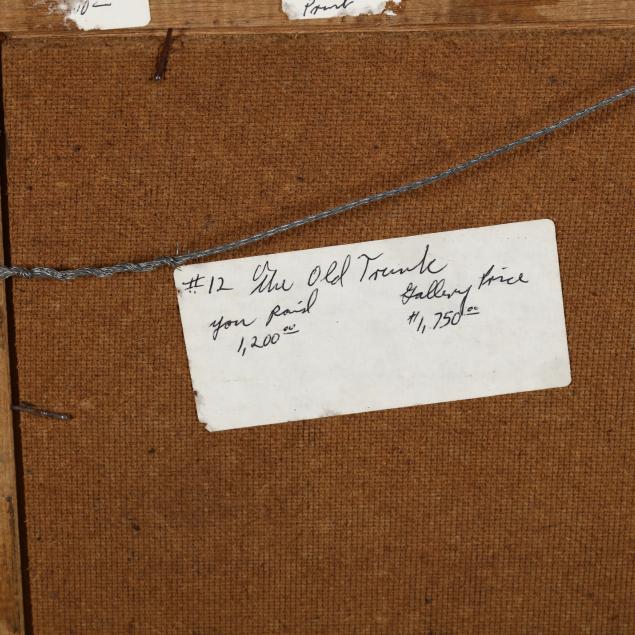 Print
#12 The Old Trunk
you Paid
1,200.00
Gallery Price
$1,750.00